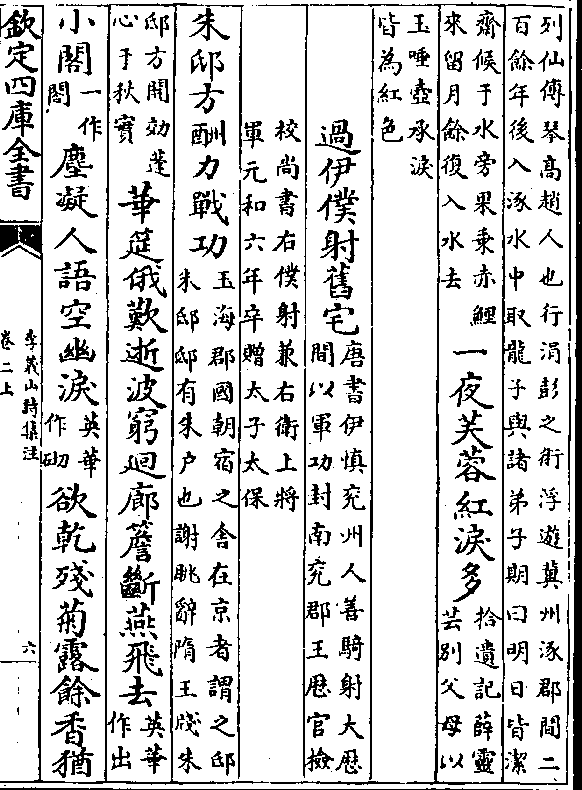 列仙傳琴高趙人也行涓彭之術浮遊冀州涿郡間二
百餘年後入涿水中取龍子與諸弟子期曰明日皆潔
齋候于水旁果乗赤鯉
來留月餘復入水去
一夜芙蓉紅淚多
拾遺記薛靈
芸别父母以
玉唾壺承淚
皆為紅色
過伊僕射舊宅
唐書伊慎兖州人善騎射大厯
間以軍功封南兖郡王厯官撿
校尚書右僕射兼右衛上將
軍元和六年卒贈太子太保
朱邸方酬力戰功
玉海郡國朝宿之舍在京者謂之邸
朱邸邸有朱户也謝眺辭隋王牋朱
邸方開効蓬
心于秋實
華筵俄歎逝波窮廻廊簷斷燕飛去
英華
作出
小閣
一作
閤
塵凝人語空幽淚
英華
作砌
欲乾殘菊露餘香猶
欽定四庫全書
李義山詩集注
卷二上
六